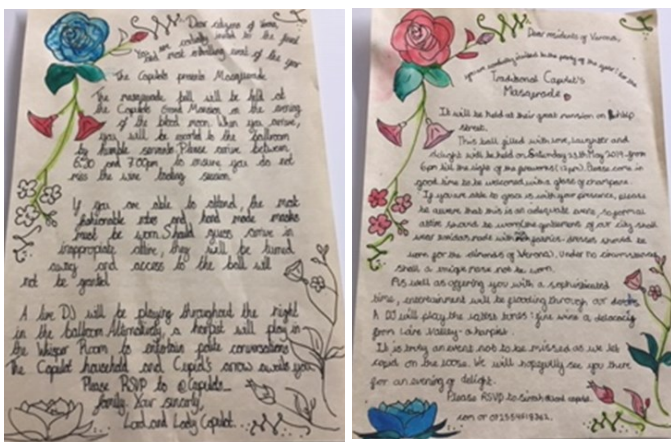 Dear citizens of Verona,
You are cordially invited to the finest
and most enthralling event of the year
The Capulets presents Masquerade
The masquerade ball will be held at
the Capulets Grand Mansion on the evening
of the blood moon. When you arrive,
you will be escorted to the ballroom
by humble servants. Please arrive between
6:30 and 7:00pm to ensure you do not
miss the wine tasting session.
If you are able to attend, the most
fashionable robes and hand made masks
must be worn. Should guests arrive in
inappropriate attire, they will be turned
away and access to the ball will
not be granted.
A live DJ will be playing throughout the night
in the ballroom. Alternatively, a harpist will play in
the Whisper Room to entertain polite conversations
The Capulet household and Cupid's arrow awaits you.
Please RSVP to @Capulets_
family. Your sincerely,
Lord and Lady Capulet.
Dear residents of Verona,
you are cordially invited to the party of the year! for the
Traditional Capulet's
Masquerade
It will be held at their great mansion on
street.
This ball filled with love, laughter and
delight will be held on Saturday 25th May 2019 from
6pm till the night of the (12pm). Please come in
good time to be welcomed with a glass of champagne.
If you are able to grace us with your presence, please
be aware that this is an elaborate event, so formal
attire should be worn (the gentlemen of our city shall
wear made with fabrics. dresses should be
worn for the of Verona). Under no circumstance
shall a mask not be worn.
As well as offering you with a sophisticated
time, entertainment will be flooding through our doors.
A DJ will play the latest songs: fine wine a delicacy
from Loire Valley- a harpist.
It is truly an event not to be missed as we let
cupid on the loose. We will hopefully see you there
for an evening of delight.
Please RSVP to
com or